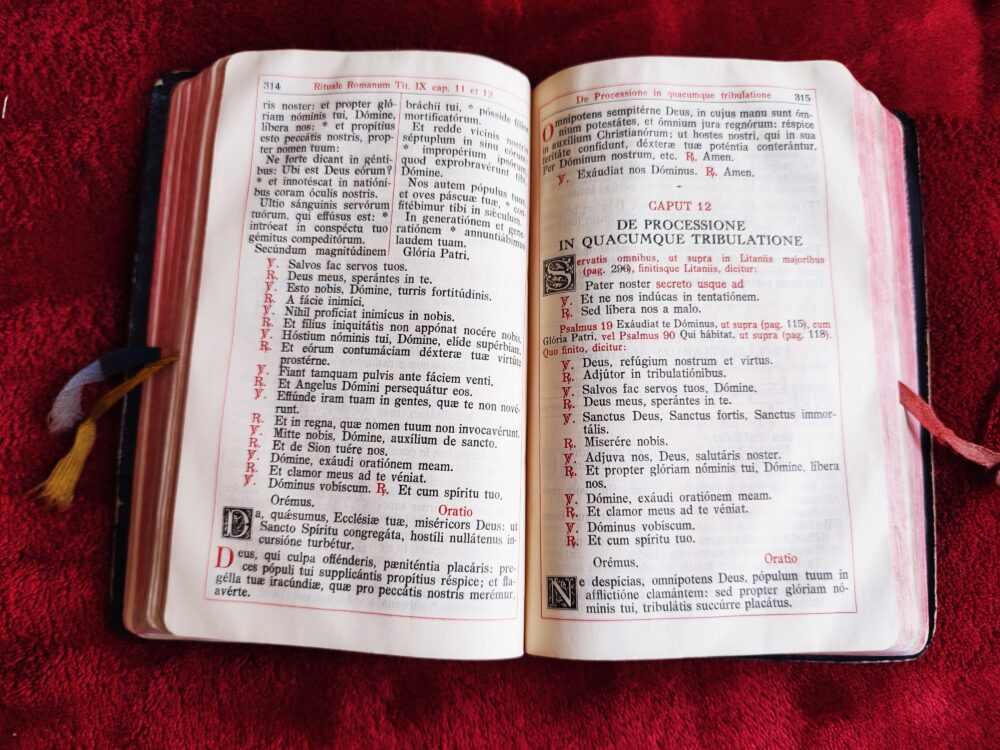 314 Rituale Romanum Tit. IX cap. 11 et 12
ris noster: et propter gló-
riam nóminis tui, Dómine,
líbera nos: * et propítius
esto peccátis nostris, prop-
ter nomen tuum:
Ne forte dicant in génti-
bus: Ubi est Deus eórum?
* et innotéscat in natióni-
bus coram óculis nostris.
Ultio sánguinis servórum
tuórum, qui effúsus est: *
intróeat in conspéctu tuo
gémitus compeditórum.
Secúndum magnitúdinem
bráchii tui, * pósside fílios
mortificatórum.
Et redde vicínis nostris
séptuplum in sinu eórum:
* impropérium ipsórum,
quod exprobravérunt tibi,
Dómine.
Nos autem pópulus tuus,
et oves páscuæ tuæ, * con-
fitébimur tibi in sǽculum.
In generatiónem et gene-
ratiónem * annuntiábimus
laudem tuam.
Glória Patri.
℣. Salvos fac servos tuos.
℟. Deus meus, sperántes in te.
℣. Esto nobis, Dómine, turris fortitúdinis.
℟. A fácie inimíci.
℣. Nihil profíciat inimícus in nobis.
℟. Et fílius iniquitátis non appónat nocére nobis.
℣. Hóstium nóminis tui, Dómine, elíde supérbiam.
℟. Et eórum contumáciam déxteræ tuæ virtúte
prostérne.
℣. Fiant tamquam pulvis ante fáciem venti.
℟. Et Angelus Dómini persequátur eos.
℣. Effúnde iram tuam in gentes, quæ te non nové-
runt.
℟. Et in regna, quæ nomen tuum non invocavérunt.
℣. Mitte nobis, Dómine, auxílium de sancto.
℟. Et de Sion tuére nos.
℣. Dómine, exáudi oratiónem meam.
℟. Et clamor meus ad te véniat.
℣. Dóminus vobíscum. ℟. Et cum spíritu tuo.
Orémus. Oratio
Da, quǽsumus, Ecclésiæ tuæ, miséricors Deus: ut
Sancto Spíritu congregáta, hostíli nullátenus in-
cursióne turbétur.
Deus, qui culpa offénderis, pæniténtia placáris: pre-
ces pópuli tui supplicántis propítius réspice; et fla-
gélla tuæ iracúndiæ, quæ pro peccátis nostris merémur,
avérte.
De Processione in quacumque tribulatione 315
Omnípotens sempitérne Deus, in cujus manu sunt óm-
nium potestátes, et ómnium jura regnórum: réspice
in auxílium Christianórum; ut hostes nostri, qui in sua
feritáte confídunt, déxteræ tuæ poténtia conterántur.
Per Dóminum nostrum, etc. ℟. Amen.
℣. Exáudiat nos Dóminus. ℟. Amen.
CAPUT 12
DE PROCESSIONE
IN QUACUMQUE TRIBULATIONE
Servatis omnibus, ut supra in Litaniis majoribus
(pag. 296), finitisque Litaniis, dicitur:
Pater noster secreto usque ad
℣. Et ne nos indúcas in tentatiónem.
℟. Sed líbera nos a malo.
Psalmus 19 Exáudiat te Dóminus, ut supra (pag. 115), cum
Glória Patri, vel Psalmus 90 Qui hábitat, ut supra (pag. 118).
Quo finito, dicitur:
℣. Deus, refúgium nostrum et virtus.
℟. Adjútor in tribulatiónibus.
℣. Salvos fac servos tuos, Dómine.
℟. Deus meus, sperántes in te.
℣. Sanctus Deus, Sanctus fortis, Sanctus immor-
tális.
℟. Miserére nobis.
℣. Adjuva nos, Deus, salutáris noster.
℟. Et propter glóriam nóminis tui, Dómine, líbera
nos.
℣. Dómine, exáudi oratiónem meam.
℟. Et clamor meus ad te véniat.
℣. Dóminus vobíscum.
℟. Et cum spíritu tuo.
Orémus. Oratio
Ne despícias, omnípotens Deus, pópulum tuum in
afflictióne clamántem: sed propter glóriam nó-
minis tui, tribulátis succúrre placátus.